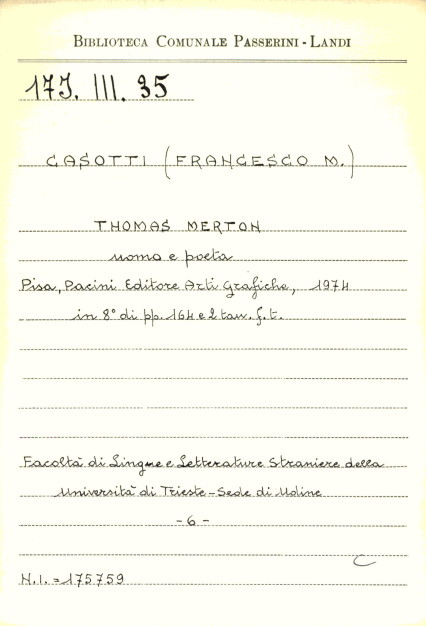 BIBLIOTECA COMUNALE PASSERINI - LANDI
17J. III. 35
CASOTTI (FRANCESCO M.)
THOMAS MERTON
uomo e poeta
Pisa, Pacini Editore Arti Grafiche, 1974
in 8° di pp. 164 e 2 tav. f. t.
Facoltà di Lingue e Letterature Straniere della
Università di Trieste - Sede di Udine
- 6 -
C
N.I. = 175759